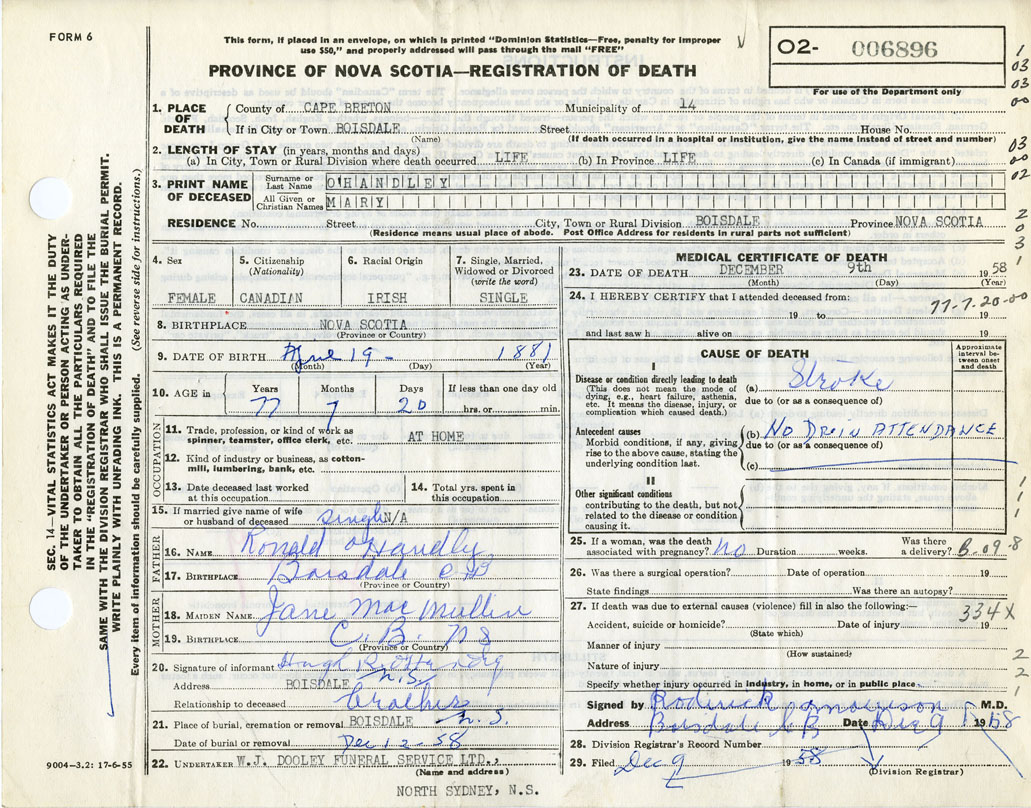 FORM 6
This form, if placed in an envelope, on which is printed "Dominion Statistics—Free, penalty for improper
use $50," and properly addressed will pass through the mail "FREE"
O2- 006896
For use of the Department only
PROVINCE OF NOVA SCOTIA—REGISTRATION OF DEATH
1. PLACE OF DEATH
County of CAPE BRETON Municipality of 14
If in City or Town BOISDALE Street House No.
(Name) (If death occurred in a hospital or institution, give the name instead of street and number)
2. LENGTH OF STAY (in years, months and days)
(a) In City, Town or Rural Division where death occurred LIFE (b) In Province LIFE (c) In Canada (if immigrant)
3. PRINT NAME OF DECEASED
Surname or Last Name O'HANDLEY
All Given or Christian Names MARY
RESIDENCE No. Street City, Town or Rural Division BOISDALE Province NOVA SCOTIA
(Residence means usual place of abode. Post Office Address for residents in rural parts not sufficient)
4. Sex
FEMALE
5. Citizenship
(Nationality)
CANADIAN
6. Racial Origin
IRISH
7. Single, Married,
Widowed or Divorced
(write the word)
SINGLE
8. BIRTHPLACE NOVA SCOTIA
(Province or Country)
9. DATE OF BIRTH 19- 1881
(Month) (Day) (Year)
10. AGE in
Years Months Days If less than one day old
77 7 20 hrs. or min.
OCCUPATION
11. Trade, profession, or kind of work as
spinner, teamster, office clerk, etc. AT HOME
12. Kind of industry or business, as cotton-
mill, lumbering, bank, etc.
13. Date deceased last worked
at this occupation
14. Total yrs. spent in
this occupation
15. If married give name of wife
or husband of deceased single N/A
FATHER
16. NAME Ronald O Handly
17. BIRTHPLACE Boisdale C B
(Province or Country)
MOTHER
18. MAIDEN NAME Jane MacMullin
19. BIRTHPLACE C. B. N S
(Province or Country)
20. Signature of informant Hugh
Address BOISDALE N.S.
Relationship to deceased brother
21. Place of burial, cremation or removal BOISDALE N.S.
Date of burial or removal Dec 12-58
22. UNDERTAKER W.J. DOOLEY FUNERAL SERVICE LTD.,
(Name and address)
NORTH SYDNEY, N.S.
MEDICAL CERTIFICATE OF DEATH
23. DATE OF DEATH DECEMBER 9th 1958
(Month) (Day) (Year)
24. I HEREBY CERTIFY that I attended deceased from:
77-7-20-00
19 to 19
and last saw h alive on 19
CAUSE OF DEATH
Approximate
interval be-
tween onset
and death
I
Disease or condition directly leading to death
(This does not mean the mode of
dying, e.g., heart failure, asthenia,
etc. It means the disease, injury, or
complication which caused death.)
(a) Stroke
due to (or as a consequence of)
Antecedent causes
Morbid conditions, if any, giving
rise to the above cause, stating the
underlying condition last.
(b) NO DR. IN ATTENDANCE
due to (or as a consequence of)
(c)
II
Other significant conditions
contributing to the death, but not
related to the disease or condition
causing it.
25. If a woman, was the death Was there
associated with pregnancy? No Duration weeks. a delivery? B-09-8
26. Was there a surgical operation? Date of operation 19
State findings Was there an autopsy?
27. If death was due to external causes (violence) fill in also the following:—
334X
Accident, suicide or homicide? Date of injury 19
(State which)
Manner of injury
(How sustained)
Nature of injury
Specify whether injury occurred in industry, in home, or in public place
Signed by Roderick Morrison M.D.
Address Boisdale C B Date Dec 9 1958
28. Division Registrar's Record Number
29. Filed Dec 9 1958
(Division Registrar)
SEC. 14—VITAL STATISTICS ACT MAKES IT THE DUTY
OF THE UNDERTAKER OR PERSON ACTING AS UNDER-
TAKER TO OBTAIN ALL THE PARTICULARS REQUIRED
IN THE "REGISTRATION OF DEATH" AND TO FILE THE
SAME WITH THE DIVISION REGISTRAR WHO SHALL ISSUE THE BURIAL PERMIT.
WRITE PLAINLY WITH UNFADING INK. THIS IS A PERMANENT RECORD.
Every item of information should be carefully supplied. (See reverse side for instructions.)
9004-3.2: 17-6-55
1
03
03
00
03
00
02
2
0
3
1
1
1
1
2
2
1